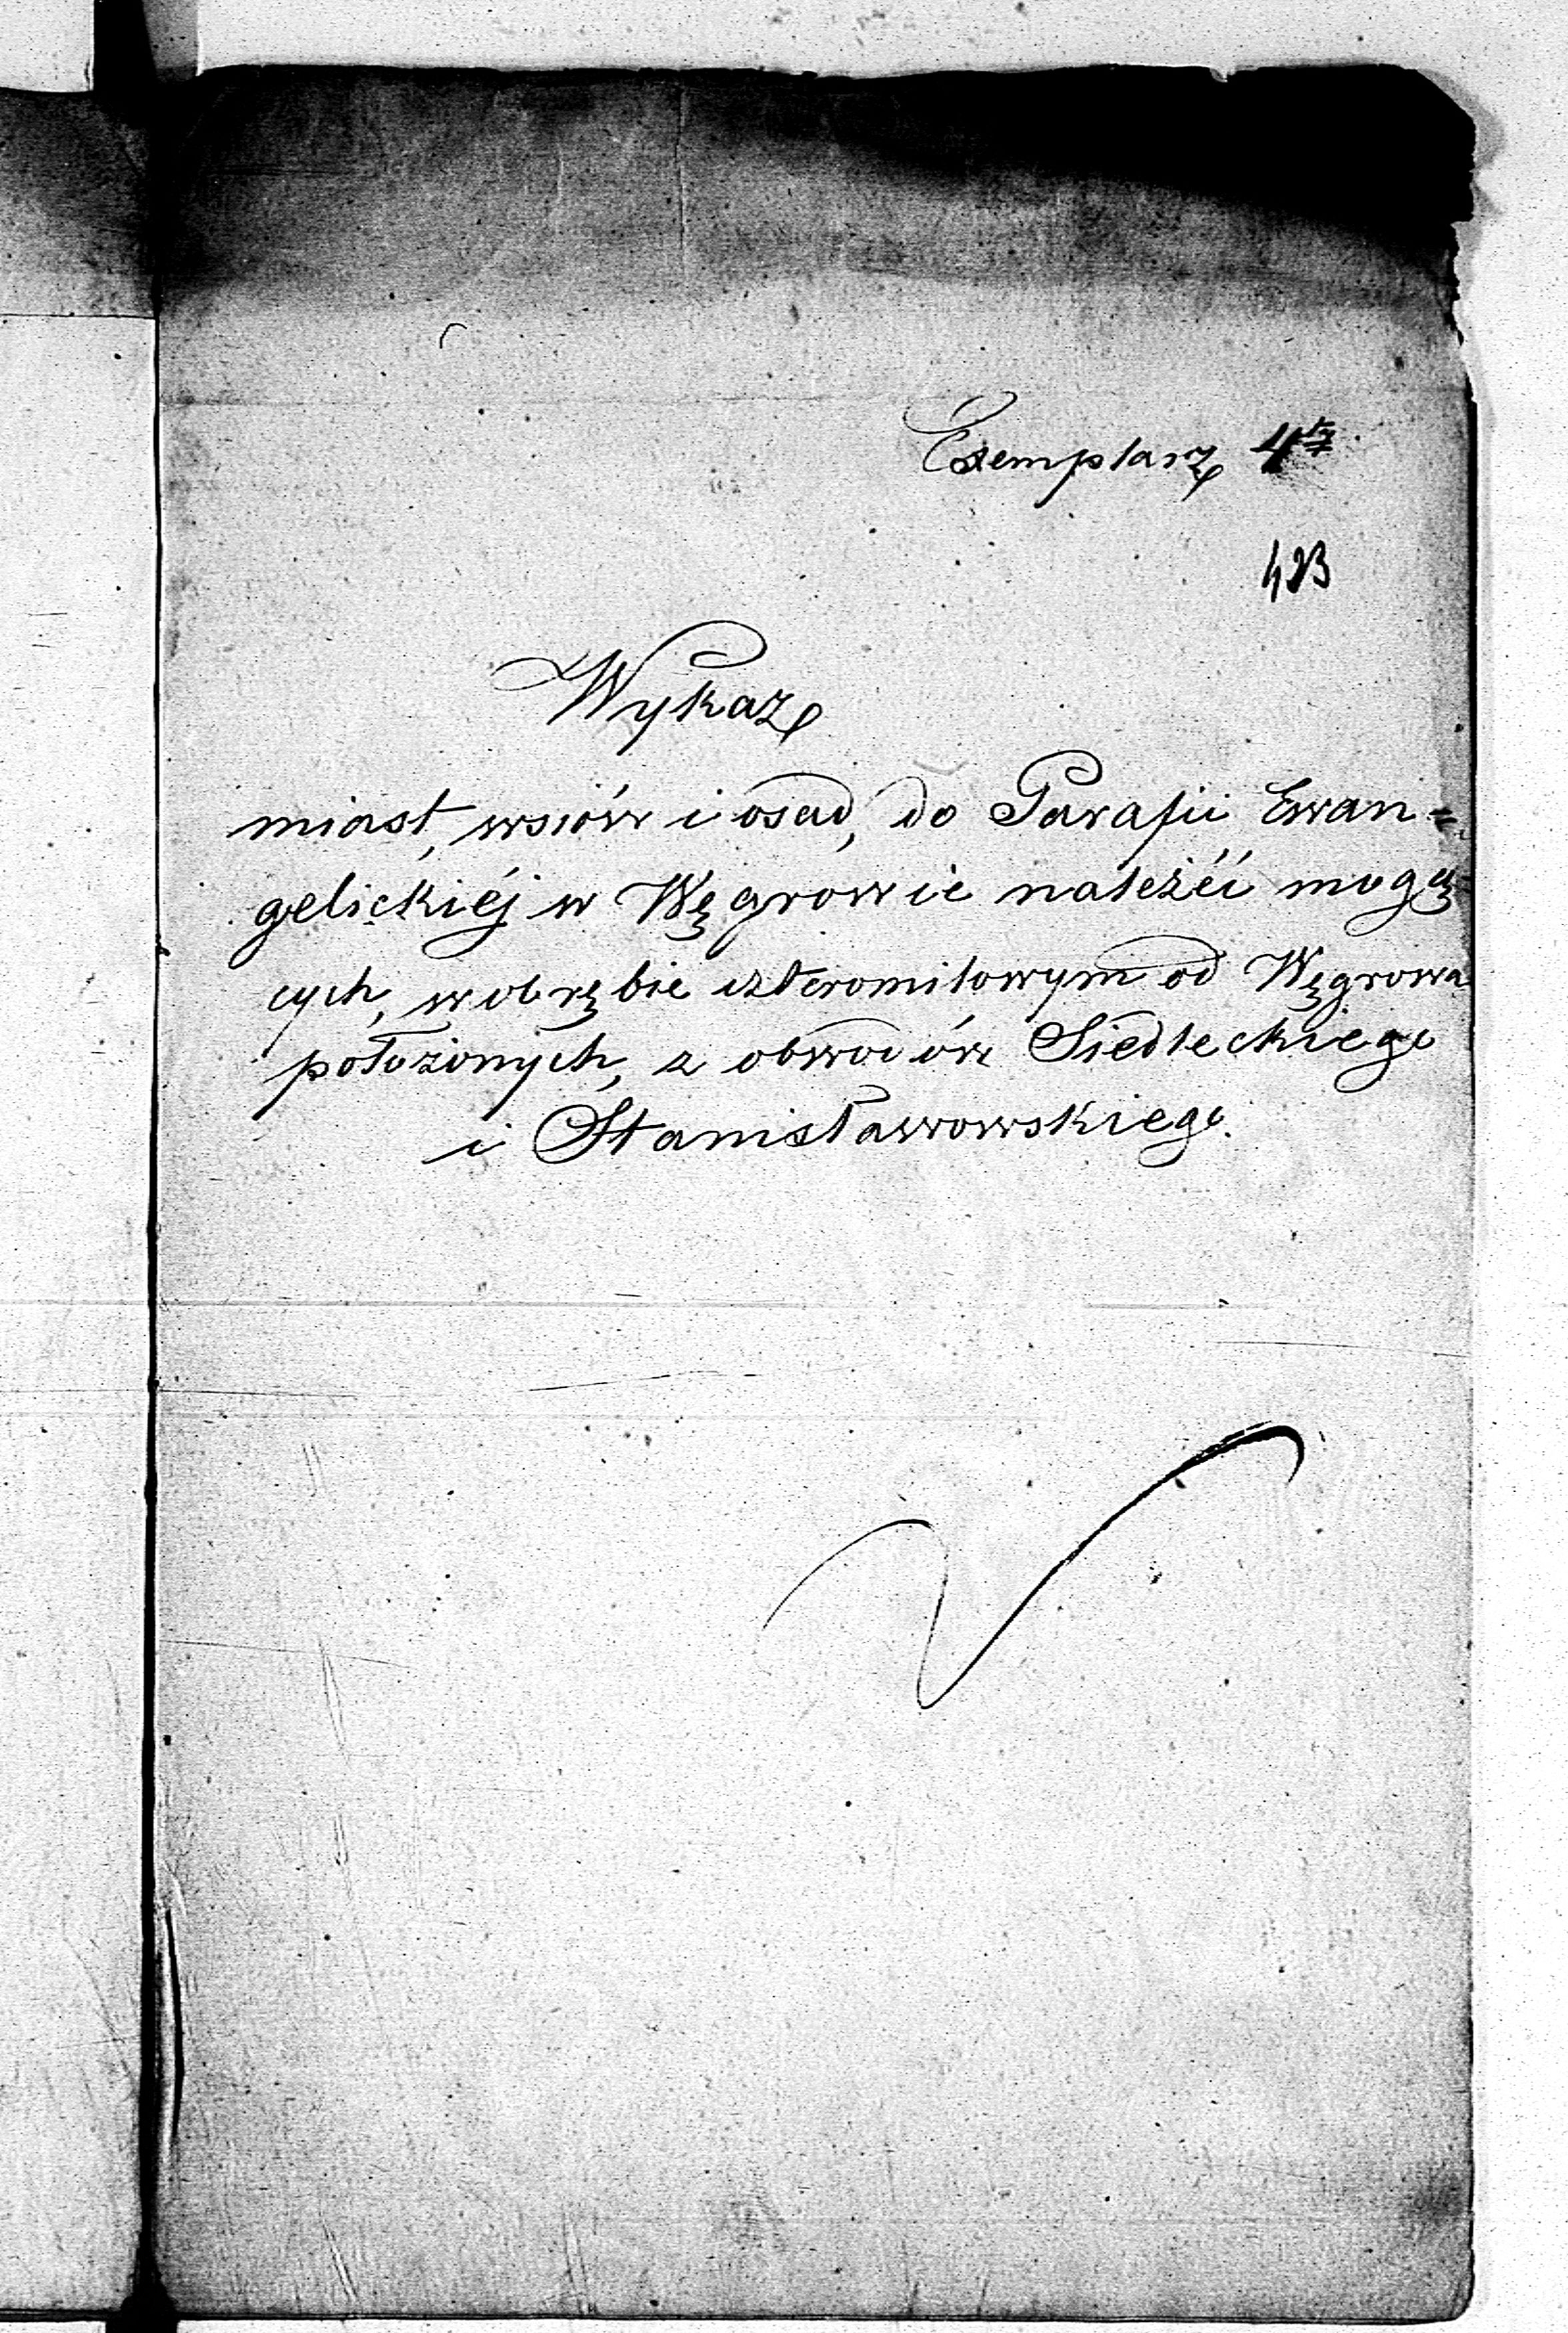 Exemplarz 4ty
423
Wykaz
miast, wsiów i osad, do Parafii Ewan=
gelickiéj w Węgrowie należéć mogą
cych, w obrębie czteromilowym od Węgrowa
położonych, z obwodów Siedleckiego
i Stanisławowskiego.